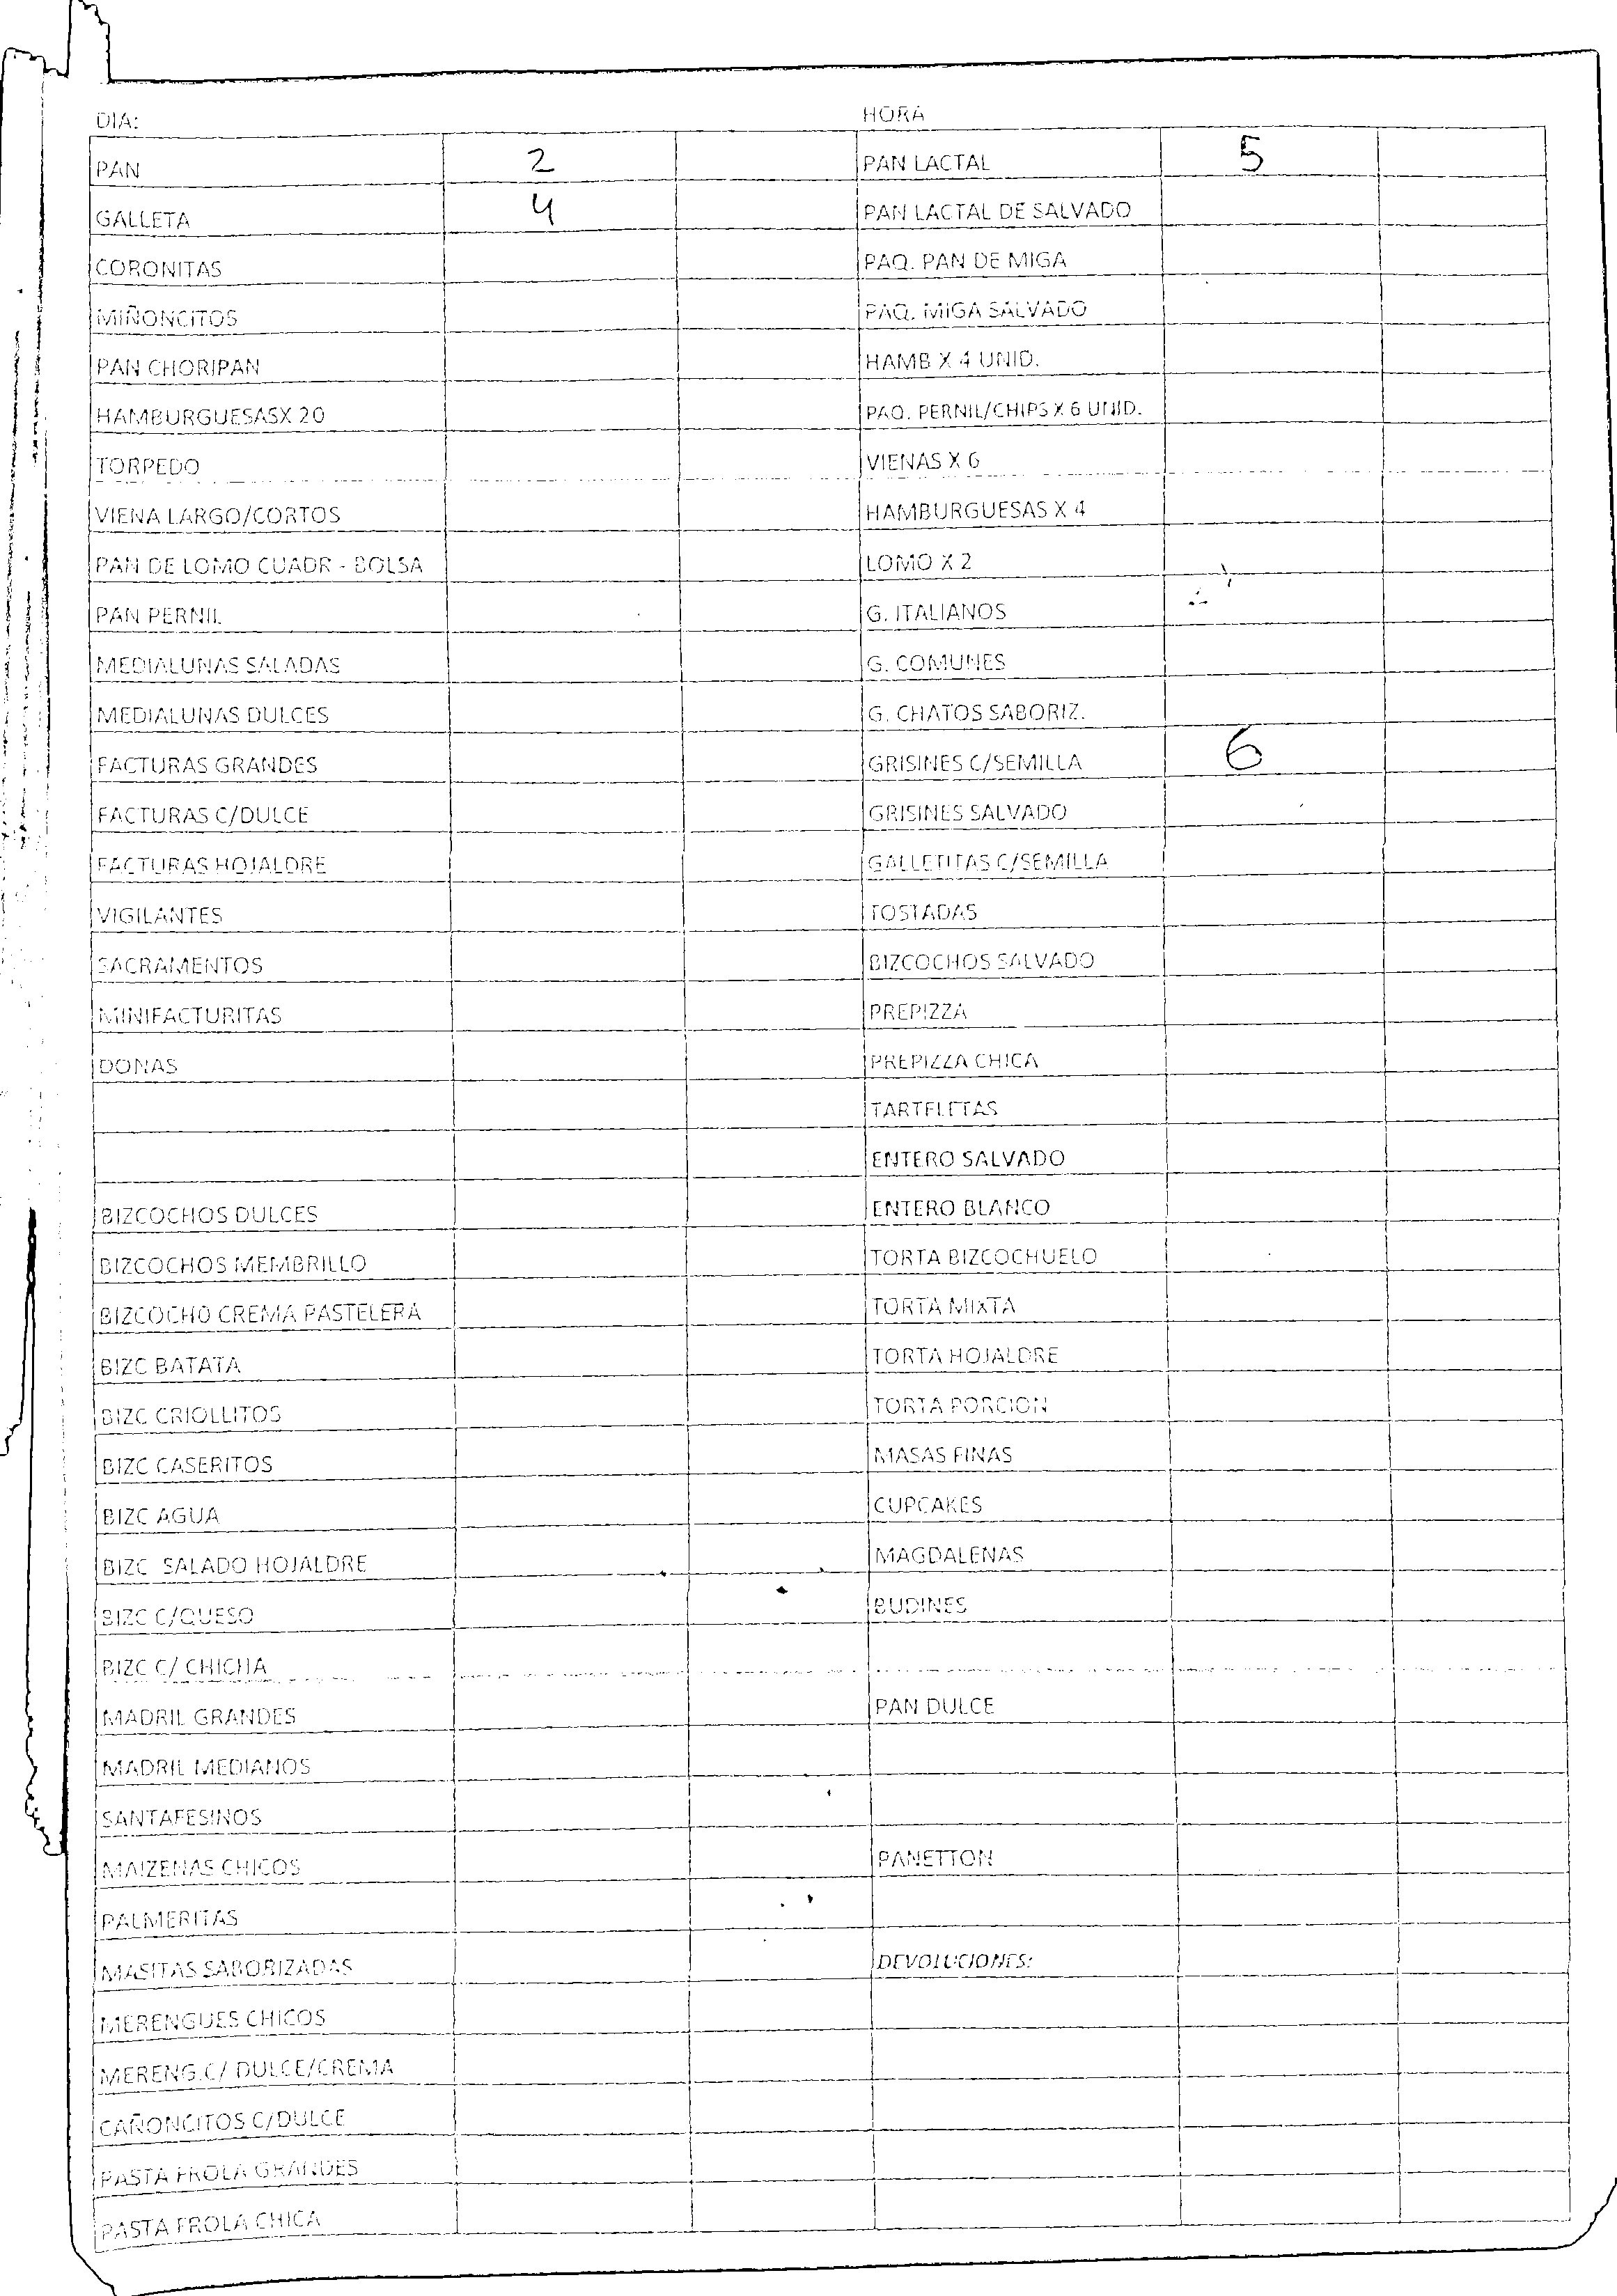 DIA: HORA
PAN 2 PAN LACTAL 5
GALLETA 4 PAN LACTAL DE SALVADO
CORONITAS PAQ. PAN DE MIGA
MIÑONCITOS PAQ. MIGA SALVADO
PAN CHORIPAN HAMB X 4 UNID.
HAMBURGUESASX 20 PAQ. PERNIL/CHIPS X 6 UNID.
TORPEDO VIENAS X 6
VIENA LARGO/CORTOS HAMBURGUESAS X 4
PAN DE LOMO CUADR - BOLSA LOMO X 2
PAN PERNIL G. ITALIANOS
MEDIALUNAS SALADAS G. COMUNES
MEDIALUNAS DULCES G. CHATOS SABORIZ.
FACTURAS GRANDES GRISINES C/SEMILLA 6
FACTURAS C/DULCE GRISINES SALVADO
FACTURAS HOJALDRE GALLETITAS C/SEMILLA
VIGILANTES TOSTADAS
SACRAMENTOS BIZCOCHOS SALVADO
MINIFACTURITAS PREPIZZA
DONAS PREPIZZA CHICA
TARTELETAS
ENTERO SALVADO
BIZCOCHOS DULCES ENTERO BLANCO
BIZCOCHOS MEMBRILLO TORTA BIZCOCHUELO
BIZCOCHO CREMA PASTELERA TORTA MIXTA
BIZC BATATA TORTA HOJALDRE
BIZC CRIOLLITOS TORTA PORCION
BIZC CASERITOS MASAS FINAS
BIZC AGUA CUPCAKES
BIZC SALADO HOJALDRE MAGDALENAS
BIZC C/QUESO BUDINES
BIZC C/ CHICHA
MADRIL GRANDES PAN DULCE
MADRIL MEDIANOS
SANTAFESINOS
MAIZENAS CHICOS PANETTON
PALMERITAS
MASITAS SABORIZADAS DEVOLUCIONES:
MERENGUES CHICOS
MERENG.C/ DULCE/CREMA
CAÑONCITOS C/DULCE
PASTA FROLA GRANDES
PASTA FROLA CHICA